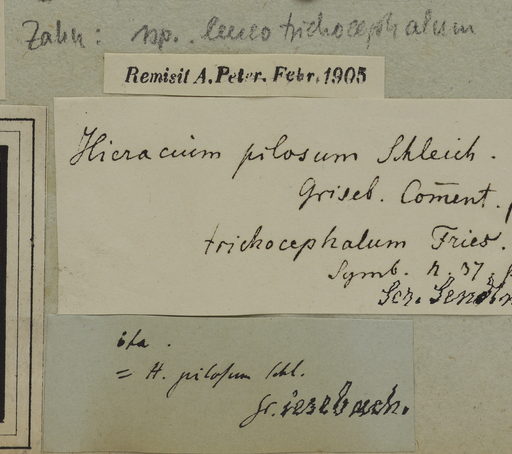 Zahn: sp. leucotrichocephalum
Remisit A. Peter. Febr. 1905
Hieracium pilosum Schleich.
Griseb. Com̄ent.
trichocephalum Fries.
Symb. n. 37.
Scr. Sendtn
ita.
= H. pilosum Schl.
Grisebach.